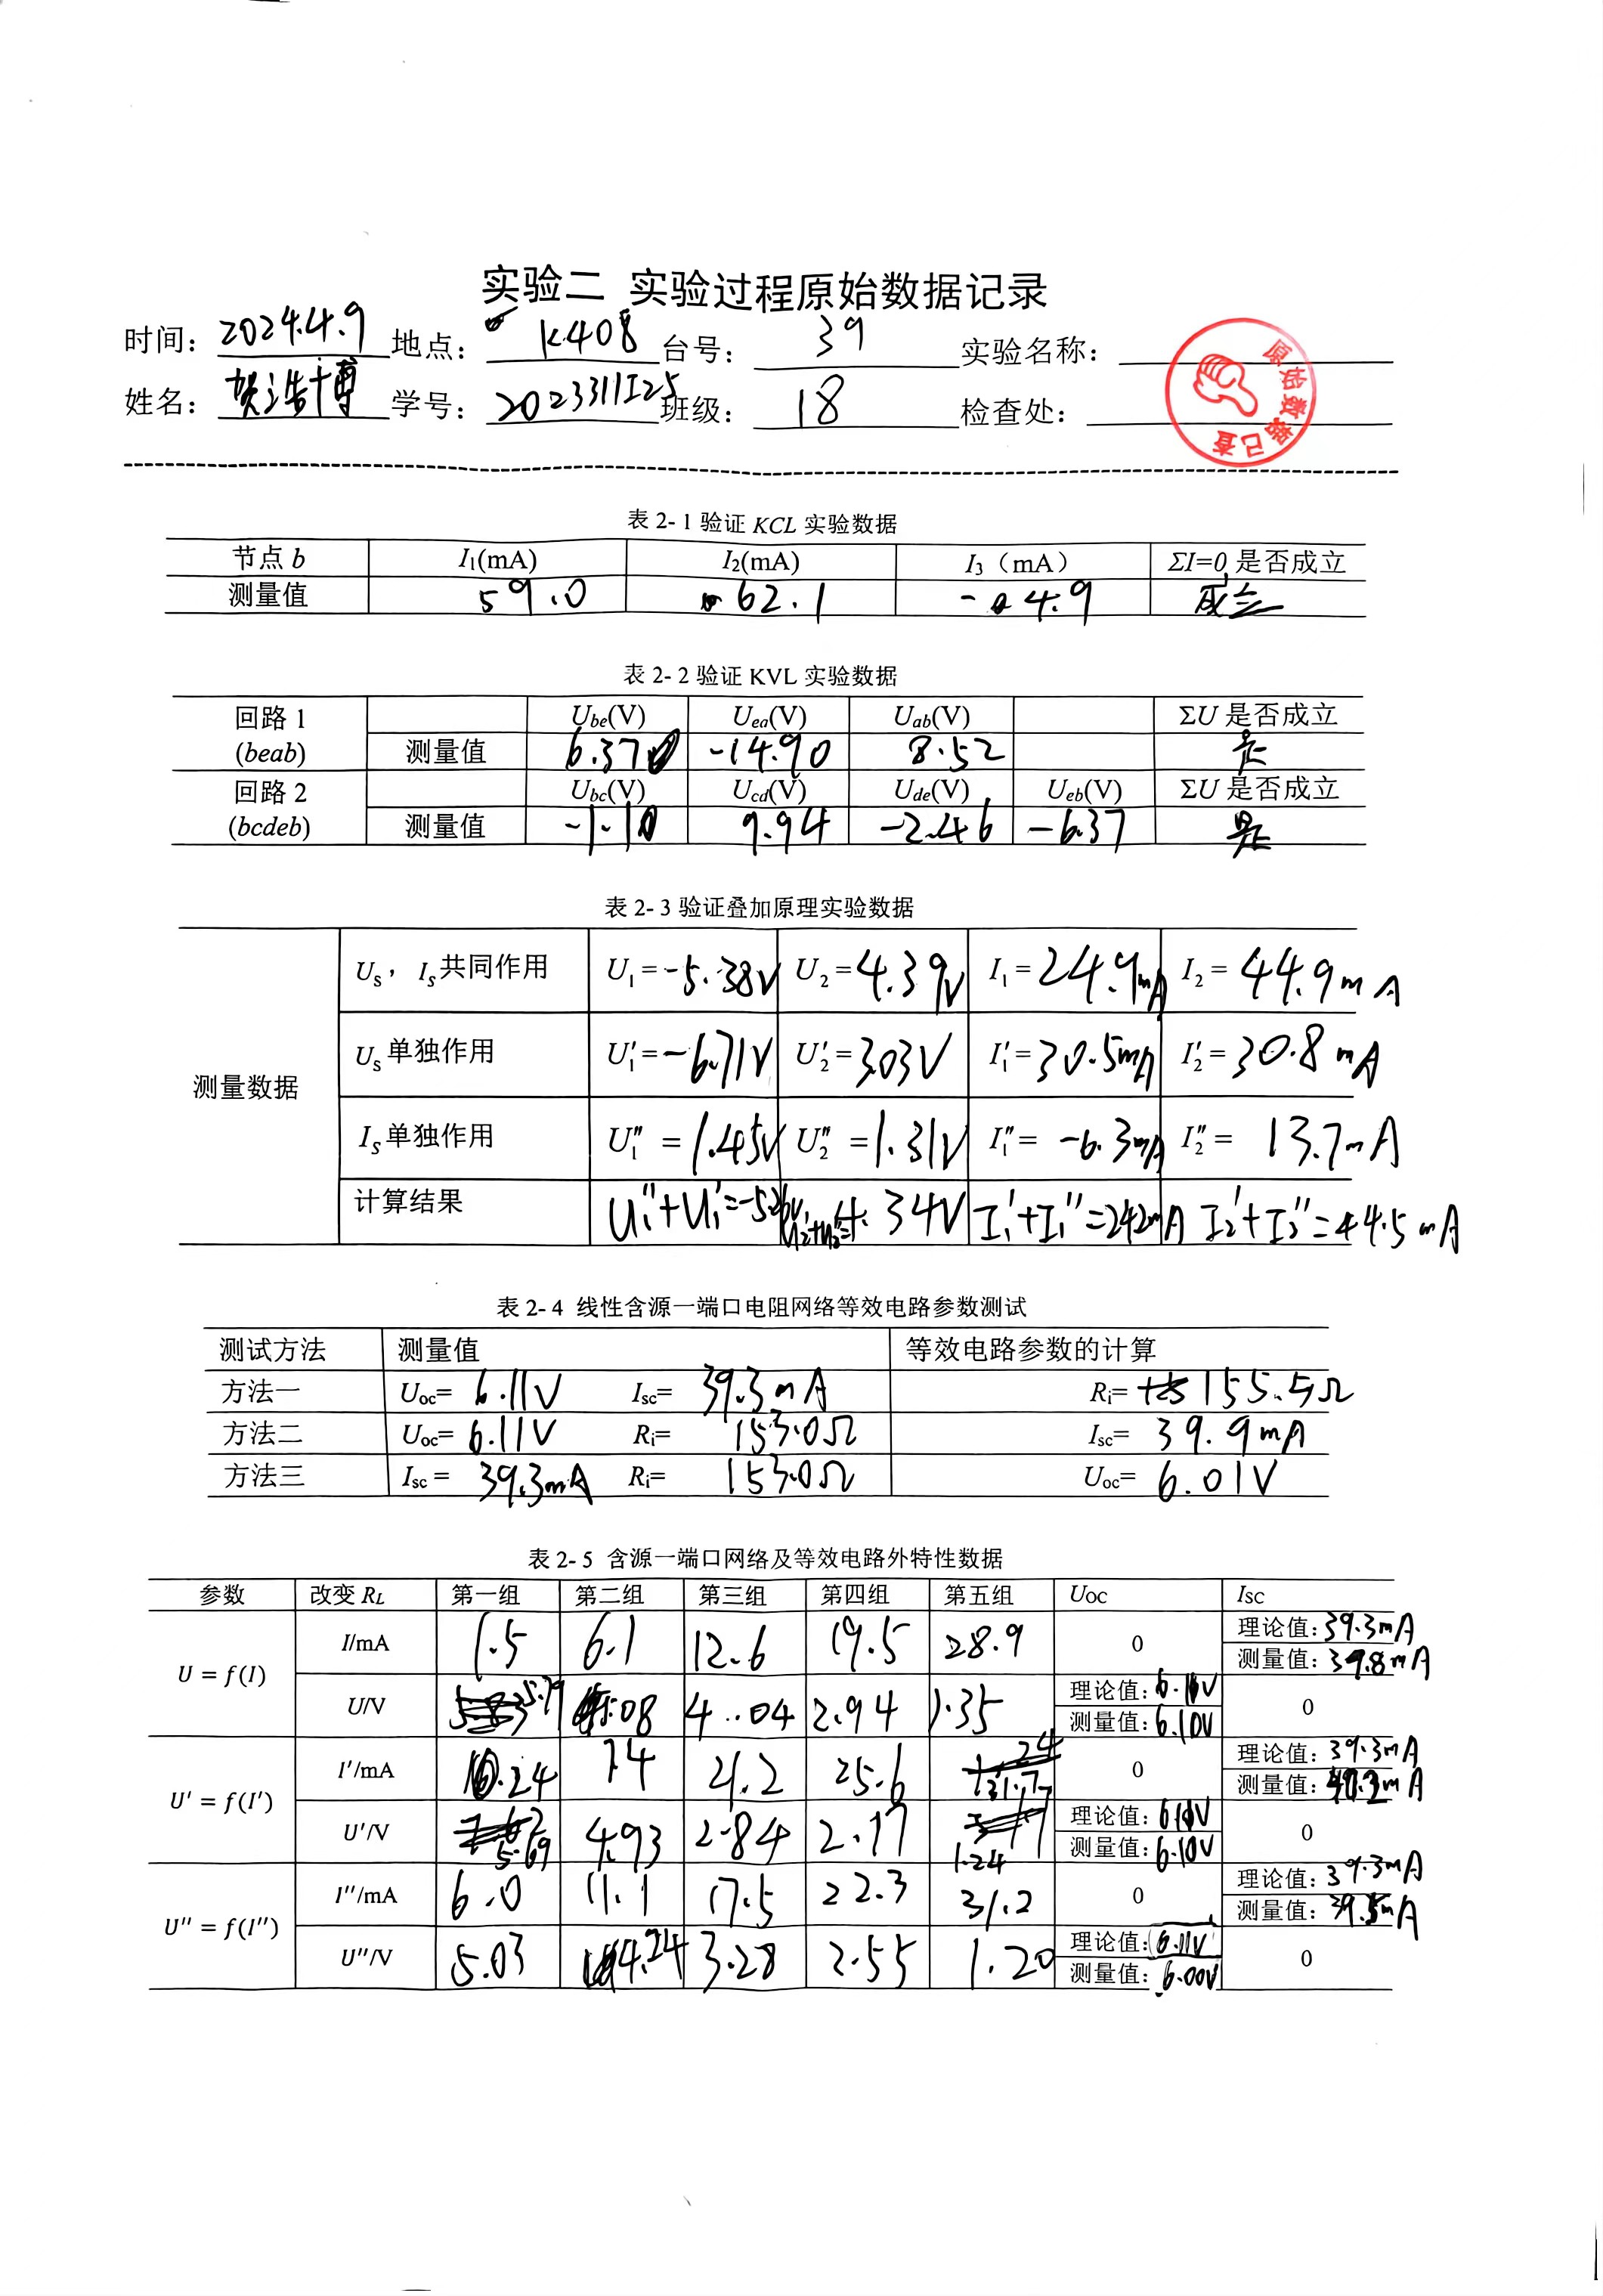 实验二 实验过程原始数据记录
时间: 2024.4.9 地点: K408 台号: 39 实验名称:
姓名: 贺浩博 学号: 2023311I25 班级: 18 检查处:
原始数据已查
表 2-1 验证 KCL 实验数据
节点 b I1(mA) I2(mA) I3（mA） ΣI=0 是否成立
测量值 59.0 62.1 -4.9 成立
表 2-2 验证 KVL 实验数据
回路 1 Ube(V) Uea(V) Uab(V) ΣU 是否成立
(beab) 测量值 6.370 -14.90 8.52 是
回路 2 Ubc(V) Ucd(V) Ude(V) Ueb(V) ΣU 是否成立
(bcdeb) 测量值 -1.10 9.94 -2.46 -6.37 是
表 2-3 验证叠加原理实验数据
测量数据
US， IS共同作用 U1=-5.38V U2=4.39V I1=24.9mA I2=44.9mA
US单独作用 U1′=-6.71V U2′=3.03V I1′=30.5mA I2′=30.8mA
IS单独作用 U1″=1.45V U2″=1.31V I1″=-6.3mA I2″=13.7mA
计算结果 U1″+U1′=-5.26V U2′+U2″=4.34V I1′+I1″=24.2mA I2′+I2″=44.5mA
表 2-4 线性含源一端口电阻网络等效电路参数测试
测试方法 测量值 等效电路参数的计算
方法一 Uoc= 6.11V Isc= 39.3mA Ri= 155.5Ω
方法二 Uoc= 6.11V Ri= 153.0Ω Isc= 39.9mA
方法三 Isc= 39.3mA Ri= 153.0Ω Uoc= 6.01V
表 2-5 含源一端口网络及等效电路外特性数据
参数 改变 RL 第一组 第二组 第三组 第四组 第五组 UOC ISC
U = f(I) I/mA 1.5 6.1 12.6 19.5 28.9 0 理论值: 39.3mA
测量值: 39.8mA
U/V 5.79 5.08 4.04 2.94 1.35 理论值: 6.10V 0
测量值: 6.10V
U′ = f(I′) I′/mA 0.24 7.4 21.2 25.6 31.7 0 理论值: 39.3mA
测量值: 40.2mA
U′/V 5.69 4.93 2.84 2.17 1.24 理论值: 6.10V 0
测量值: 6.10V
U″ = f(I″) I″/mA 6.0 11.1 17.5 22.3 31.2 0 理论值: 39.3mA
测量值: 39.5mA
U″/V 5.03 4.24 3.28 2.55 1.20 理论值: 6.11V 0
测量值: 6.00V